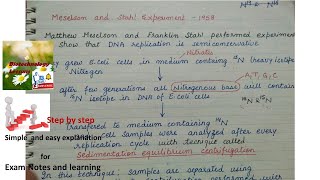 N14 & N15
Meselson and Stahl Experiment - 1958
Matthew Meselson and Franklin Stahl performed experiment
show that DNA replication is semiconservative
Nitrates
grew E.coli cells in medium containg 15N (heavy isotope
Nitrogen
A,T,G,C
after few generations all Nitrogenous base will contain
15N isotope in DNA of E.coli cells
14N & 15N
transferred to medium containing 14N
cells samples were analyzed after every
replication cycle with technique called
Sedimentation equilibrium centrifugation
In this technique; samples are separated using
performed with
Biotechnology
Step by step
Simple and easy explanation
for
Exam Notes and learning